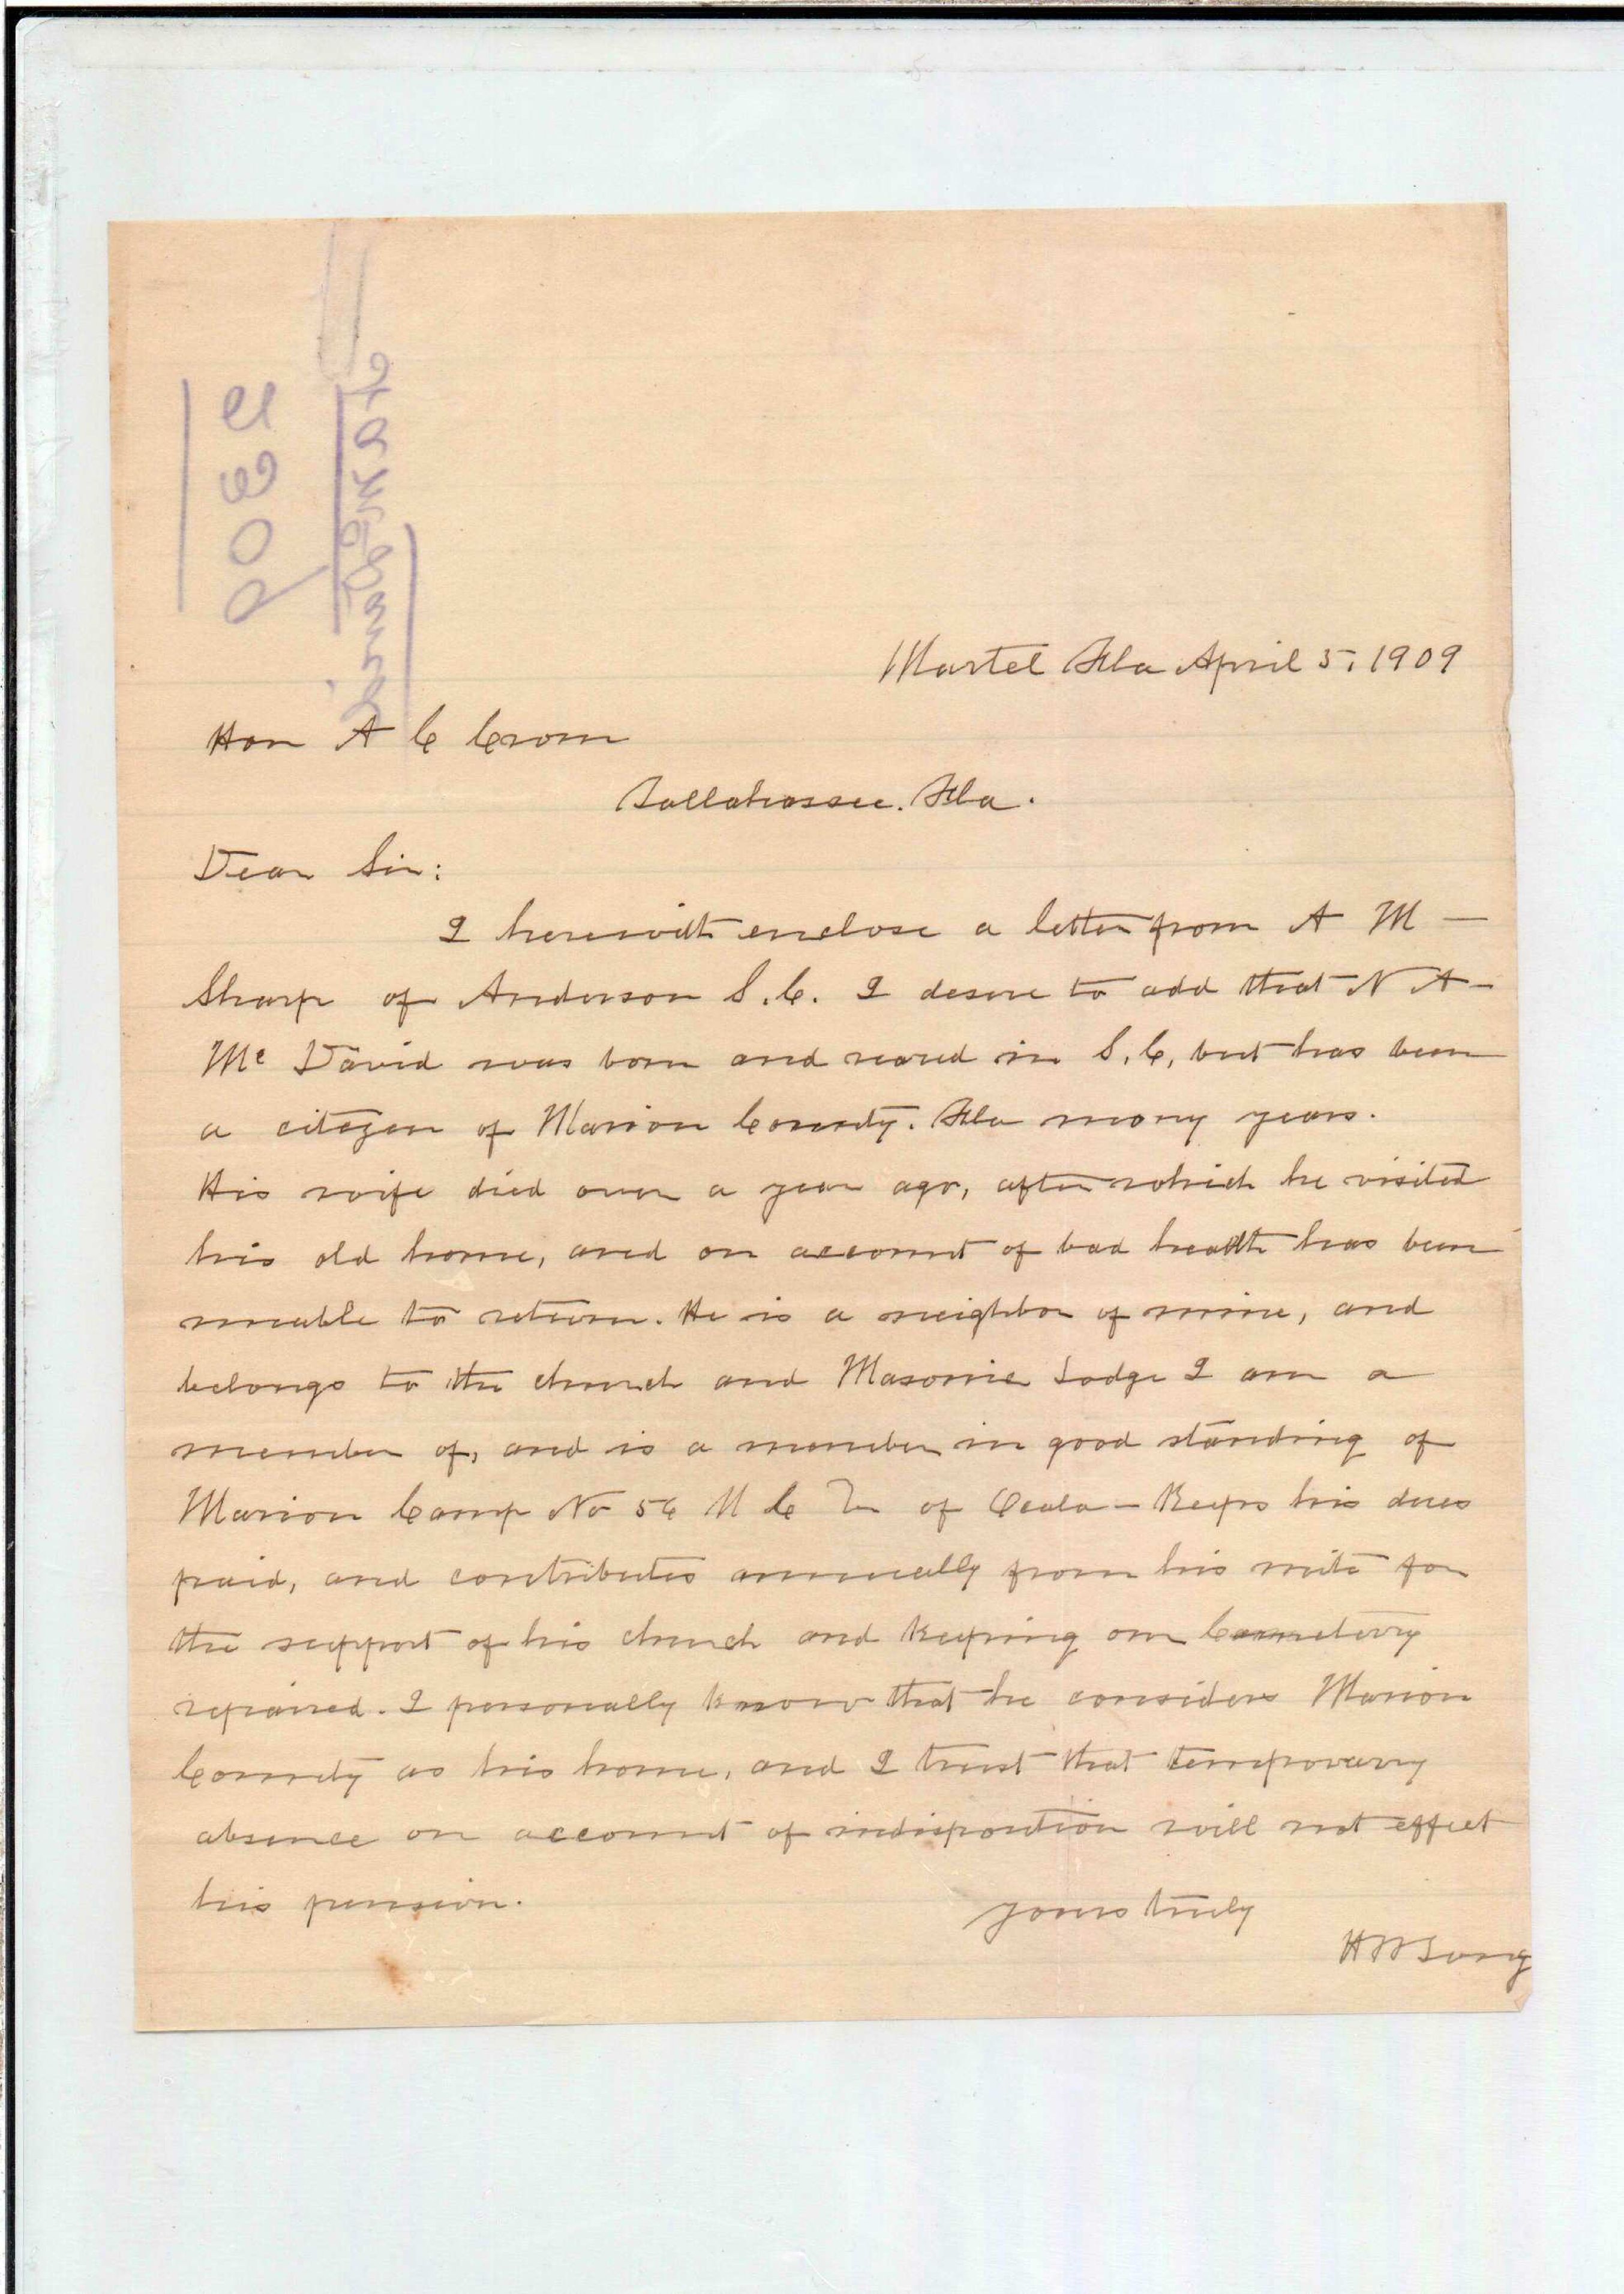 Martel Fla April 5, 1909
Hon A C Crom
Tallahassee. Fla.
Dear Sir:
I herewith enclose a letter from A M —
Sharp of Anderson S.C. I desire to add that N A —
Mc David was born and reared in S.C, but has been
a citizen of Marion County. Fla many years.
His wife died over a year ago, after which he visited
his old home, and on account of bad health has been
unable to return. He is a neighbor of mine, and
belongs to the church and Masonic Lodge I am a
member of, and is a member in good standing of
Marion Camp No 56 U C V of Ocala — Keeps his dues
paid, and contributes annually from his mite for
the support of his church and keeping our Cemetery
repaired. I personally know that he considers Marion
County as his home, and I trust that temporary
absence on account of indisposition will not effect
his pension.
yours truly
H W Long